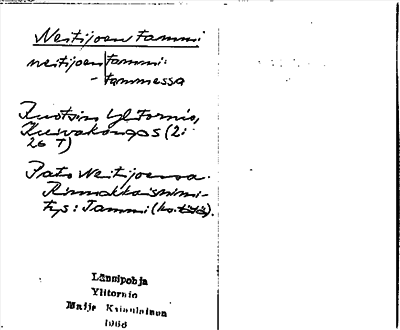 Neitijoen tammi
neitijoen|tammi:
- tammessa
Ruotsin Ylitornio,
Kuivakangas (2:
26 T)
Pato Neitijoessa.
Rinnakkaisnimi-
tys: Tammi (ks. tätä).
Länsipohja
Ylitornio
Maija
1966